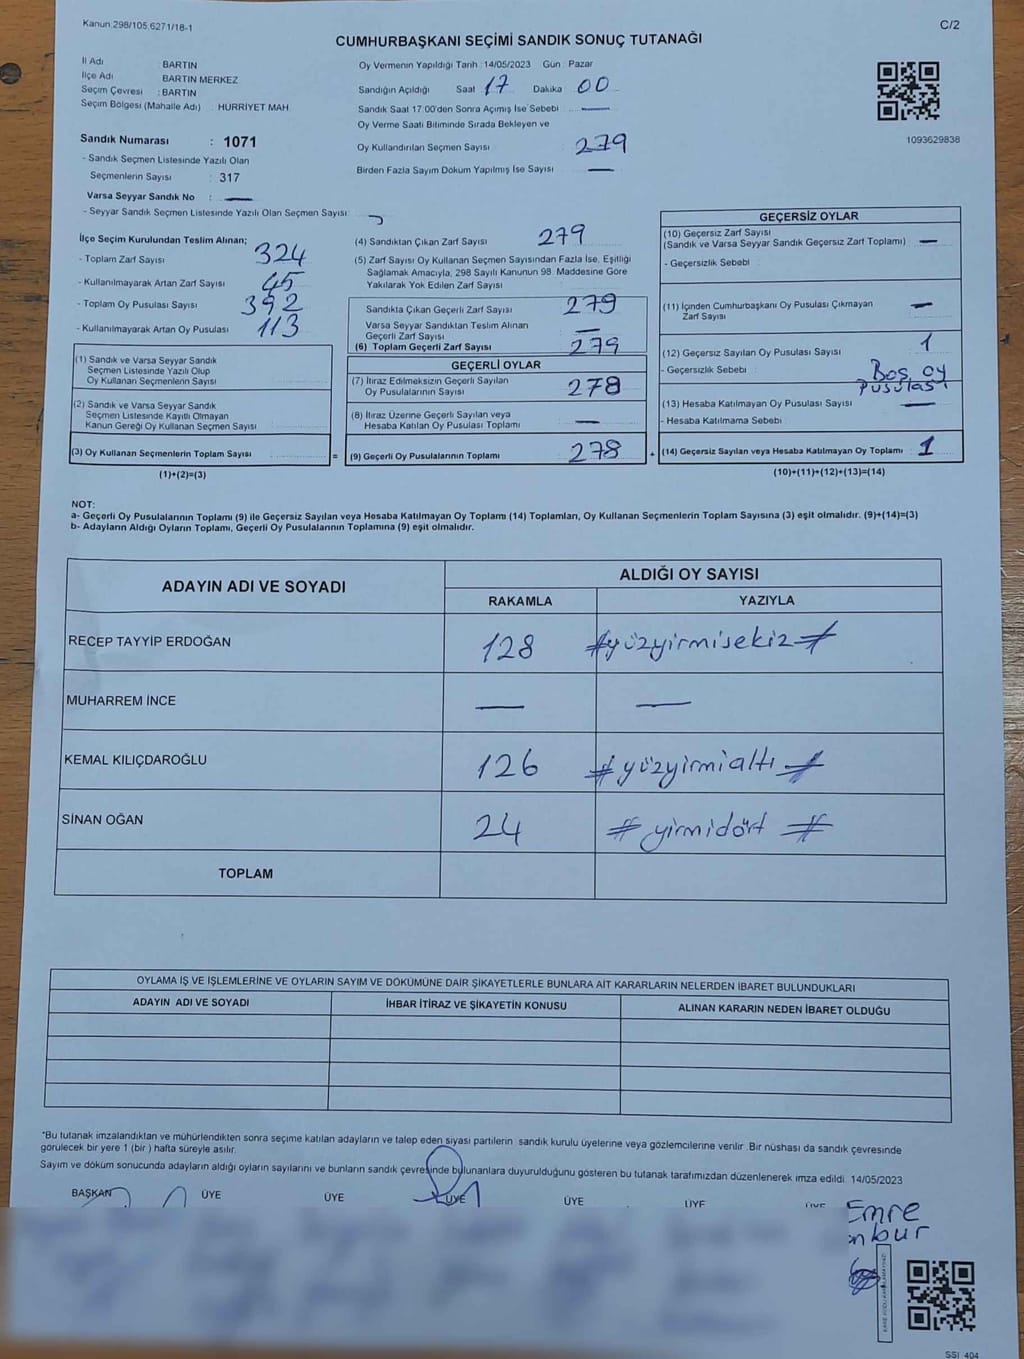 Kanun:298/105,6271/18-1
C/2
CUMHURBAŞKANI SEÇİMİ SANDIK SONUÇ TUTANAĞI
İl Adı : BARTIN
İlçe Adı : BARTIN MERKEZ
Seçim Çevresi : BARTIN
Seçim Bölgesi (Mahalle Adı) : HÜRRİYET MAH
Sandık Numarası : 1071
- Sandık Seçmen Listesinde Yazılı Olan
Seçmenlerin Sayısı : 317
Varsa Seyyar Sandık No : —
- Seyyar Sandık Seçmen Listesinde Yazılı Olan Seçmen Sayısı:
Oy Vermenin Yapıldığı Tarih : 14/05/2023 Gün : Pazar
Sandığın Açıldığı Saat 17 Dakika 00
Sandık Saat 17:00'den Sonra Açımış İse Sebebi —
Oy Verme Saati Bitiminde Sırada Bekleyen ve
Oy Kullandırılan Seçmen Sayısı 279
Birden Fazla Sayım Döküm Yapılmış İse Sayısı —
1093629838
İlçe Seçim Kurulundan Teslim Alınan;
- Toplam Zarf Sayısı 324
- Kullanılmayarak Artan Zarf Sayısı 45
- Toplam Oy Pusulası Sayısı 392
- Kullanılmayarak Artan Oy Pusulası 113
(1) Sandık ve Varsa Seyyar Sandık
Seçmen Listesinde Yazılı Olup
Oy Kullanan Seçmenlerin Sayısı
(2) Sandık ve Varsa Seyyar Sandık
Seçmen Listesinde Kayıtlı Olmayan
Kanun Gereği Oy Kullanan Seçmen Sayısı
(3) Oy Kullanan Seçmenlerin Toplam Sayısı
(1)+(2)=(3)
=
(4) Sandıktan Çıkan Zarf Sayısı 279
(5) Zarf Sayısı Oy Kullanan Seçmen Sayısından Fazla İse, Eşitliği
Sağlamak Amacıyla, 298 Sayılı Kanunun 98. Maddesine Göre
Yakılarak Yok Edilen Zarf Sayısı
Sandıkta Çıkan Geçerli Zarf Sayısı 279
Varsa Seyyar Sandıktan Teslim Alınan
Geçerli Zarf Sayısı —
(6) Toplam Geçerli Zarf Sayısı 279
GEÇERLİ OYLAR
(7) İtiraz Edilmeksizin Geçerli Sayılan
Oy Pusulalarının Sayısı 278
(8) İtiraz Üzerine Geçerli Sayılan veya
Hesaba Katılan Oy Pusulası Toplamı —
(9) Geçerli Oy Pusulalarının Toplamı 278
+
GEÇERSİZ OYLAR
(10) Geçersiz Zarf Sayısı
(Sandık ve Varsa Seyyar Sandık Geçersiz Zarf Toplamı) —
- Geçersizlik Sebebi :
(11) İçinden Cumhurbaşkanı Oy Pusulası Çıkmayan
Zarf Sayısı —
(12) Geçersiz Sayılan Oy Pusulası Sayısı 1
- Geçersizlik Sebebi : Boş oy
pusulası
(13) Hesaba Katılmayan Oy Pusulası Sayısı —
- Hesaba Katılmama Sebebi
(14) Geçersiz Sayılan veya Hesaba Katılmayan Oy Toplamı : 1
(10)+(11)+(12)+(13)=(14)
NOT:
a- Geçerli Oy Pusulalarının Toplamı (9) ile Geçersiz Sayılan veya Hesaba Katılmayan Oy Toplamı (14) Toplamları, Oy Kullanan Seçmenlerin Toplam Sayısına (3) eşit olmalıdır. (9)+(14)=(3)
b- Adayların Aldığı Oyların Toplamı, Geçerli Oy Pusulalarının Toplamına (9) eşit olmalıdır.
ADAYIN ADI VE SOYADI
ALDIĞI OY SAYISI
RAKAMLA YAZIYLA
RECEP TAYYİP ERDOĞAN 128 #yüzyirmisekiz#
MUHARREM İNCE — —
KEMAL KILIÇDAROĞLU 126 #yüzyirmialtı#
SİNAN OĞAN 24 #yirmidört#
TOPLAM
OYLAMA İŞ VE İŞLEMLERİNE VE OYLARIN SAYIM VE DÖKÜMÜNE DAİR ŞİKAYETLERLE BUNLARA AİT KARARLARIN NELERDEN İBARET BULUNDUKLARI
ADAYIN ADI VE SOYADI İHBAR İTİRAZ VE ŞİKAYETİN KONUSU ALINAN KARARIN NEDEN İBARET OLDUĞU
*Bu tutanak imzalandıktan ve mühürlendikten sonra seçime katılan adayların ve talep eden siyasi partilerin sandık kurulu üyelerine veya gözlemcilerine verilir. Bir nüshası da sandık çevresinde
görülecek bir yere 1 (bir ) hafta süreyle asılır.
Sayım ve döküm sonucunda adayların aldığı oyların sayılarını ve bunların sandık çevresinde bulunanlara duyurulduğunu gösteren bu tutanak tarafımızdan düzenlenerek imza edildi. 14/05/2023
BAŞKAN ÜYE ÜYE ÜYE ÜYE ÜYE ÜYE
Emre
SSI 404